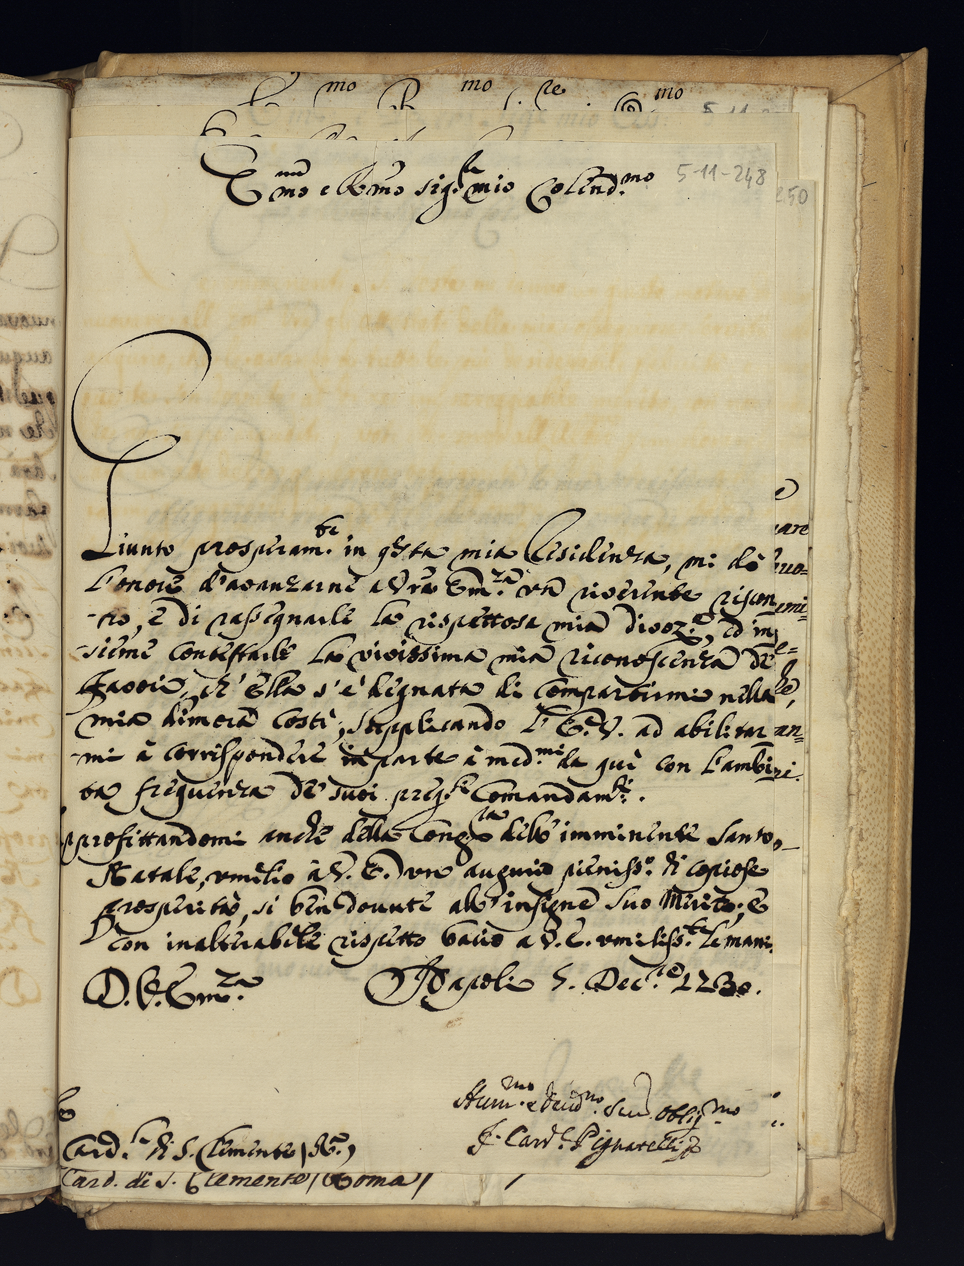 5-11-248
250
Em̃mo e Rm̃o Sig.re mio Colend.mo
Giunto prosperam.te in q̃sta mia Residenza, mi dò
l'onore d'avanzarne a Vrã Em.za un riverente riscon
-tro, e di rassegnarle la rispettosa mia divoz.e, ed in
-sieme contestarle la vivissima mia riconoscenza de
favori, ch'Ella s'è degnata di compartirmi nella
mia dimora costì; supplicando l'E. V. ad abilitar
-mi à corrispondere in parte à med.mi da quì con l'ambi
ta frequenza de' suoi preg.ti Comandam.ti.
profittandomi anche della Cong.ra dell'imminente Santo
Natale, umilio à V. E. un augurio pieniss.o di copiose
prosperità, sì ben dovute all'insigne suo Merito; e
con inalterabile rispetto bacio a V. E. umiliss.te le mani.
D. V. Em.za Napoli 5. Dec.re 1730.
Hum.mo e Dev.mo Ser. Oblig.mo
F. Card.l Pignatelli
Card.le di S. Clemente, Rã
Card. di S. Clemente / Roma /